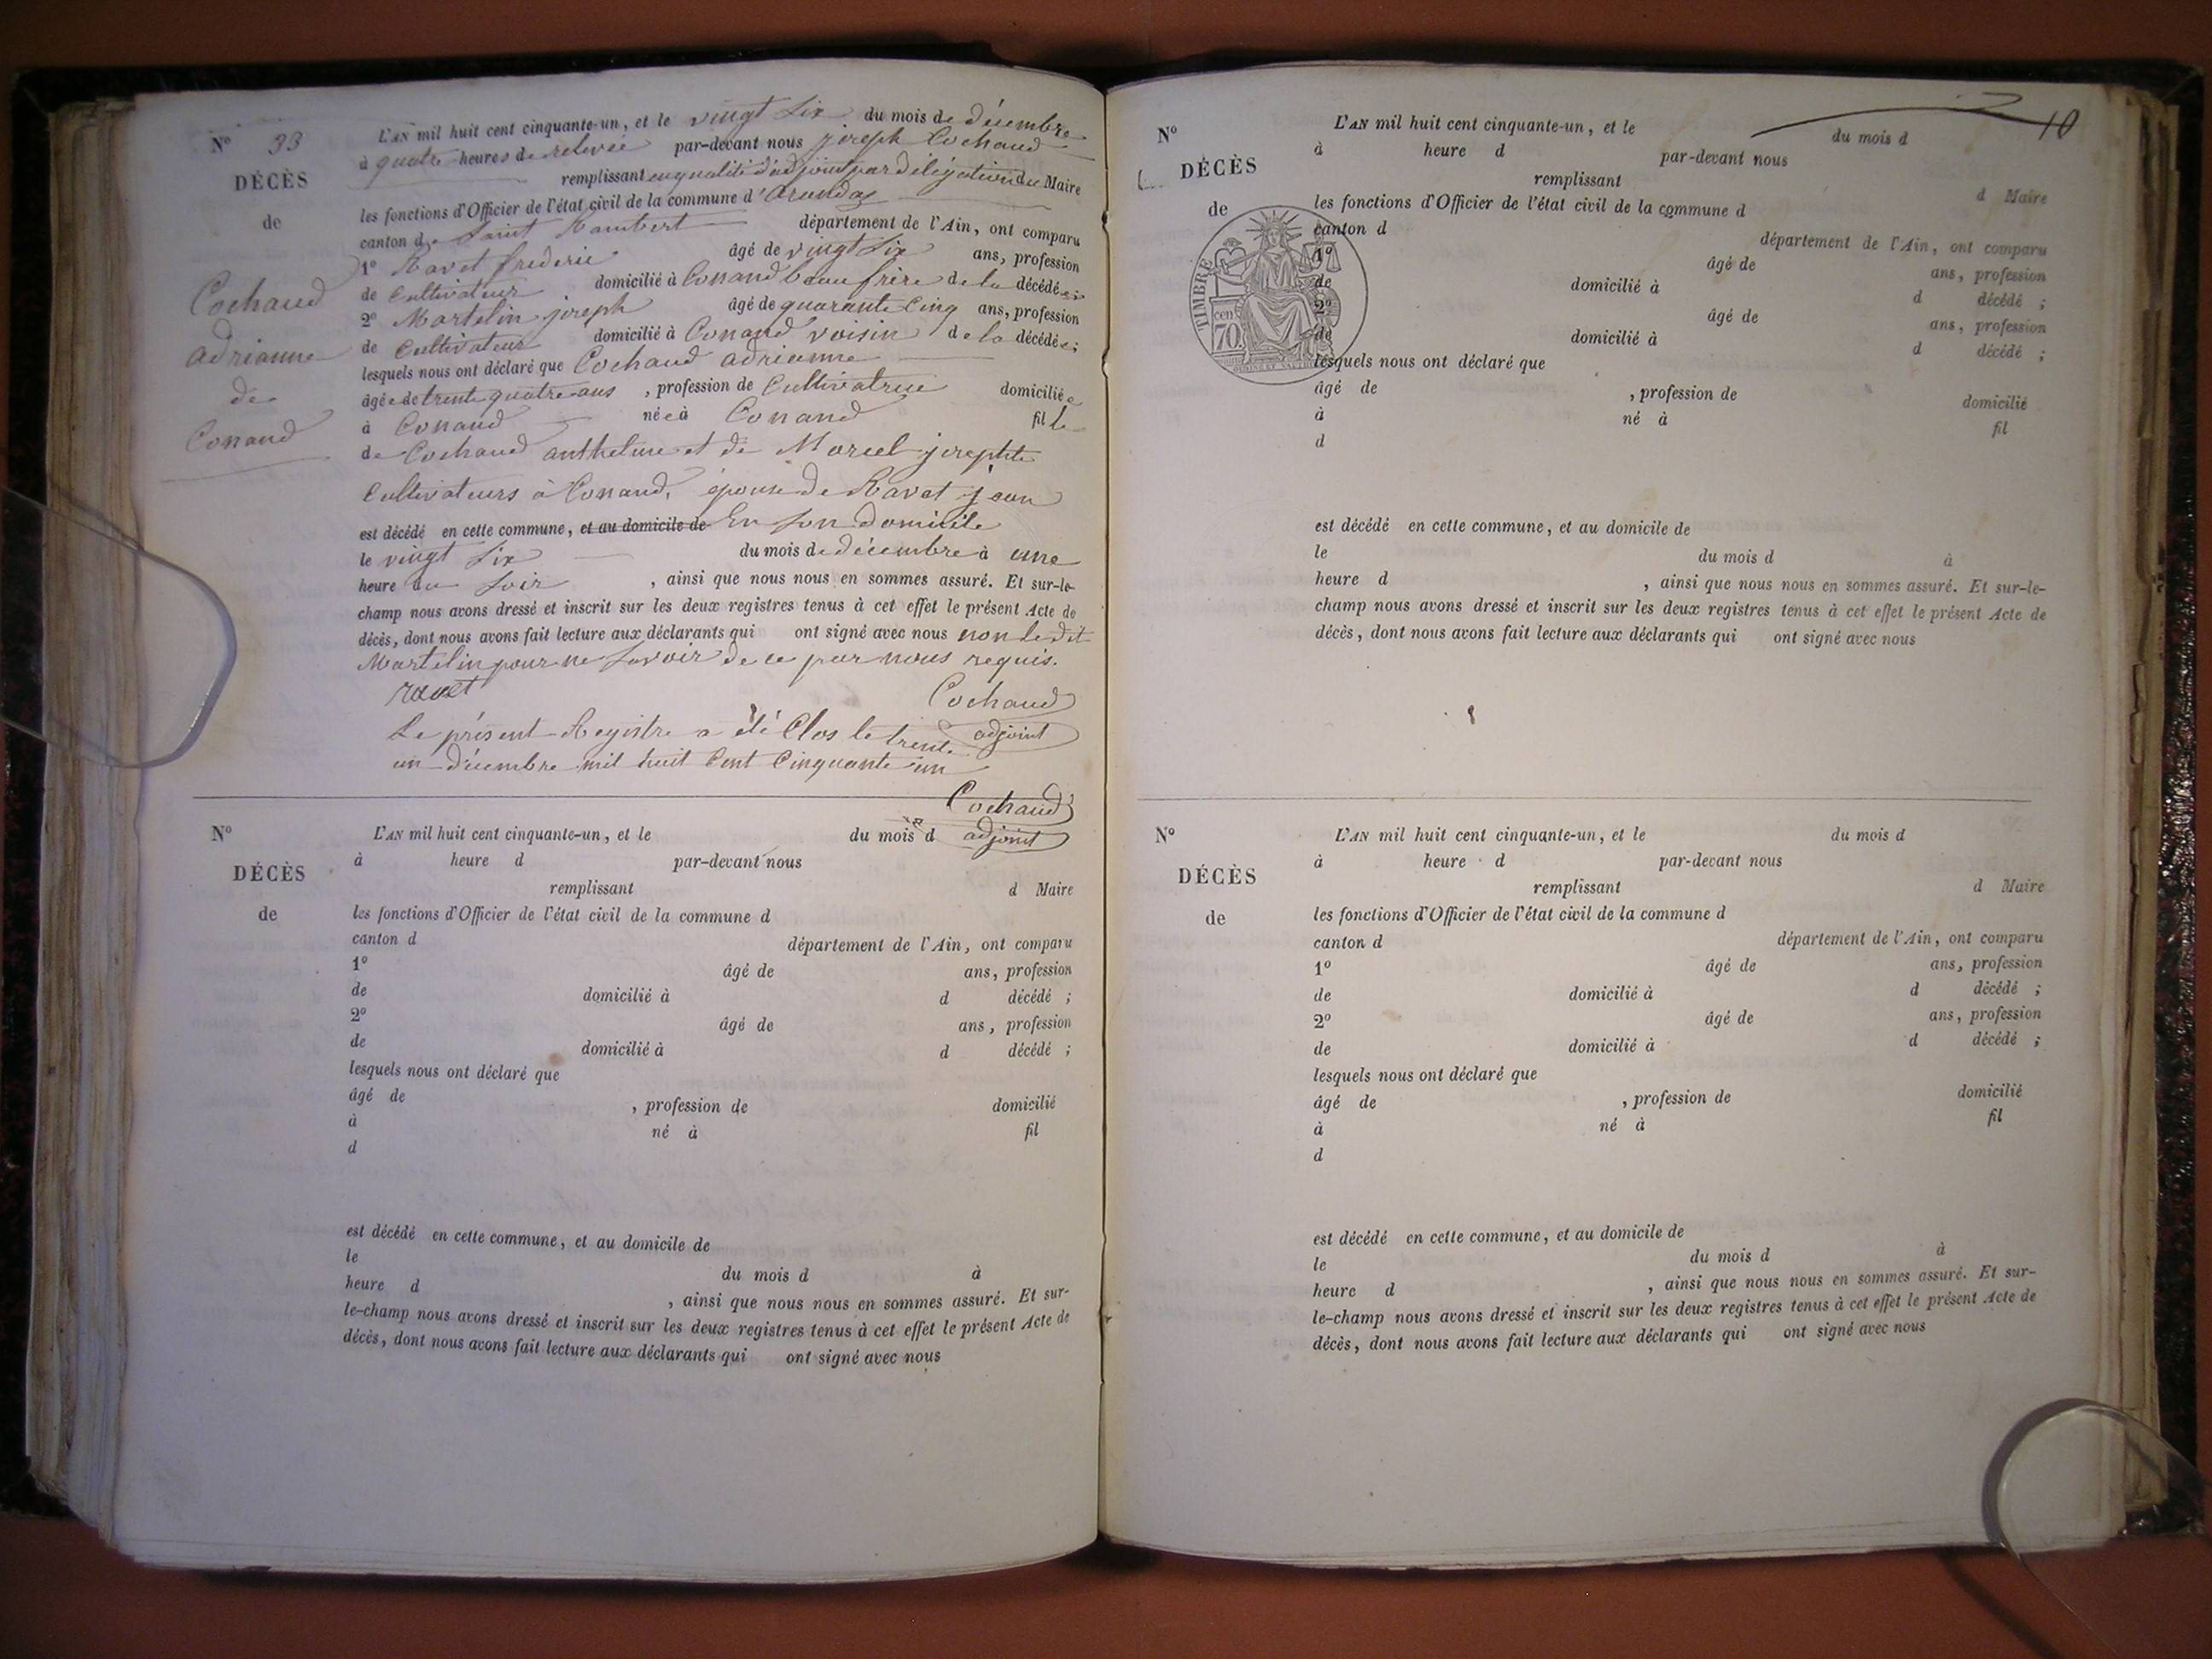 N° 33
DÉCÈS
de
Cochaud
adrianne
de
Conand
L'AN mil huit cent cinquante-un, et le vingt six du mois de décembre
à quatre heures de relevée par-devant nous joseph Cochaud
remplissant en qualité d'adjoint par délégation du Maire
les fonctions d'Officier de l'état civil de la commune d'Arandas
canton de Saint Rambert département de l'Ain, ont comparu
1° Ravet frederic âgé de vingt six ans, profession
de Cultivateur domicilié à Conand beaufrère de la décédée;
2° Martelin joseph âgé de quarante Cinq ans, profession
de Cultivateur domicilié à Conand voisin de la décédée;
lesquels nous ont déclaré que Cochaud adrianne
âgée de trente quatre ans , profession de Cultivatrice domiciliée
à Conand née à Conand fille
de Cochaud anthelme et de Morcel josephte
Cultivateurs à Conand, épouse de Ravet jean
est décédé en cette commune, et au domicile de En son domicile
le vingt six du mois de décembre à une
heure du soir , ainsi que nous nous en sommes assuré. Et sur-le-
champ nous avons dressé et inscrit sur les deux registres tenus à cet effet le présent Acte de
décès, dont nous avons fait lecture aux déclarants qui ont signé avec nous non le dit
Martelin pour ne savoir de ce par nous requis.
ravet Cochaud
adjoint
Le présent Registre a été Clos le trente
un décembre mil huit Cent Cinquante un
Cochaud
adjoint
N°
DÉCÈS
de
L'AN mil huit cent cinquante-un, et le du mois d
à heure d par-devant nous
remplissant d Maire
les fonctions d'Officier de l'état civil de la commune d
canton d département de l'Ain, ont comparu
1° âgé de ans, profession
de domicilié à d décédé ;
2° âgé de ans, profession
de domicilié à d décédé ;
lesquels nous ont déclaré que
âgé de , profession de domicilié
à né à fil
d
est décédé en cette commune, et au domicile de
le du mois d à
heure d , ainsi que nous nous en sommes assuré. Et sur-
le-champ nous avons dressé et inscrit sur les deux registres tenus à cet effet le présent Acte de
décès, dont nous avons fait lecture aux déclarants qui ont signé avec nous
10
N°
DÉCÈS
de
TIMBRE
cen
70
L'AN mil huit cent cinquante-un, et le du mois d
à heure d par-devant nous
remplissant d Maire
les fonctions d'Officier de l'état civil de la commune d
canton d département de l'Ain, ont comparu
1° âgé de ans, profession
de domicilié à d décédé ;
2° âgé de ans, profession
de domicilié à d décédé ;
lesquels nous ont déclaré que
âgé de , profession de domicilié
à né à fil
d
est décédé en cette commune, et au domicile de
le du mois d à
heure d , ainsi que nous nous en sommes assuré. Et sur-le-
champ nous avons dressé et inscrit sur les deux registres tenus à cet effet le présent Acte de
décès, dont nous avons fait lecture aux déclarants qui ont signé avec nous
N°
DÉCÈS
de
L'AN mil huit cent cinquante-un, et le du mois d
à heure d par-devant nous
remplissant d Maire
les fonctions d'Officier de l'état civil de la commune d
canton d département de l'Ain, ont comparu
1° âgé de ans, profession
de domicilié à d décédé ;
2° âgé de ans, profession
de domicilié à d décédé ;
lesquels nous ont déclaré que
âgé de , profession de domicilié
à né à fil
d
est décédé en cette commune, et au domicile de
le du mois d à
heure d , ainsi que nous nous en sommes assuré. Et sur-
le-champ nous avons dressé et inscrit sur les deux registres tenus à cet effet le présent Acte de
décès, dont nous avons fait lecture aux déclarants qui ont signé avec nous